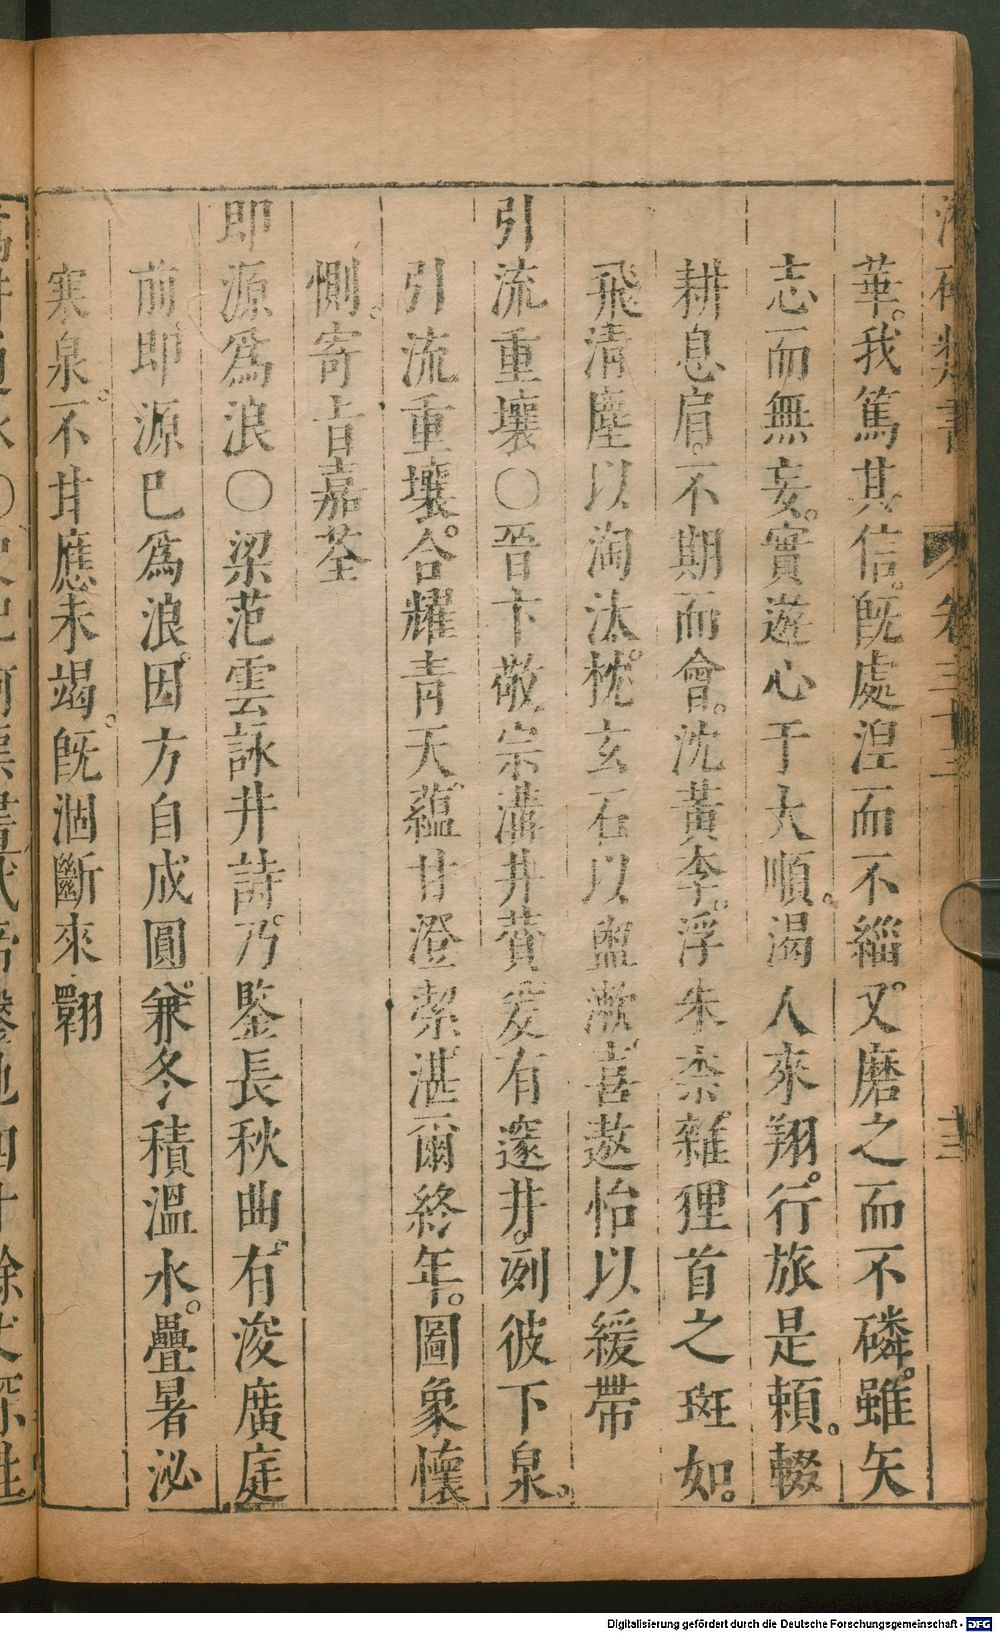 華。我篤其信。旣處湼而不緇。又磨之而不磷。雖矢
志而無妄。實遊心于大順。渴人來翔。行旅是賴。輟
耕息肩。不期而會。沈黃李。浮朱柰。雜狸首之斑如。
飛清塵以淘汰。枕玄石以盥漱。喜遨怡以緩帶
引流重壤○晉卞敬宗溝井贊爰有邃井。冽彼下泉。
引流重壤。合耀青天。蘊甘澄絜。湛爾終年。圖象懷
惻。寄旨嘉荃
即源爲浪○梁范雲詠井詩。乃鑒長秋曲。有浚廣庭
前即源巳爲浪。因方自成圓。兼冬積溫水。疊暑泌
寒泉。不甘應未竭。旣涸斷來翾
卷三十三
十三
Digitalisierung gefördert durch die Deutsche Forschungsgemeinschaft - DFG